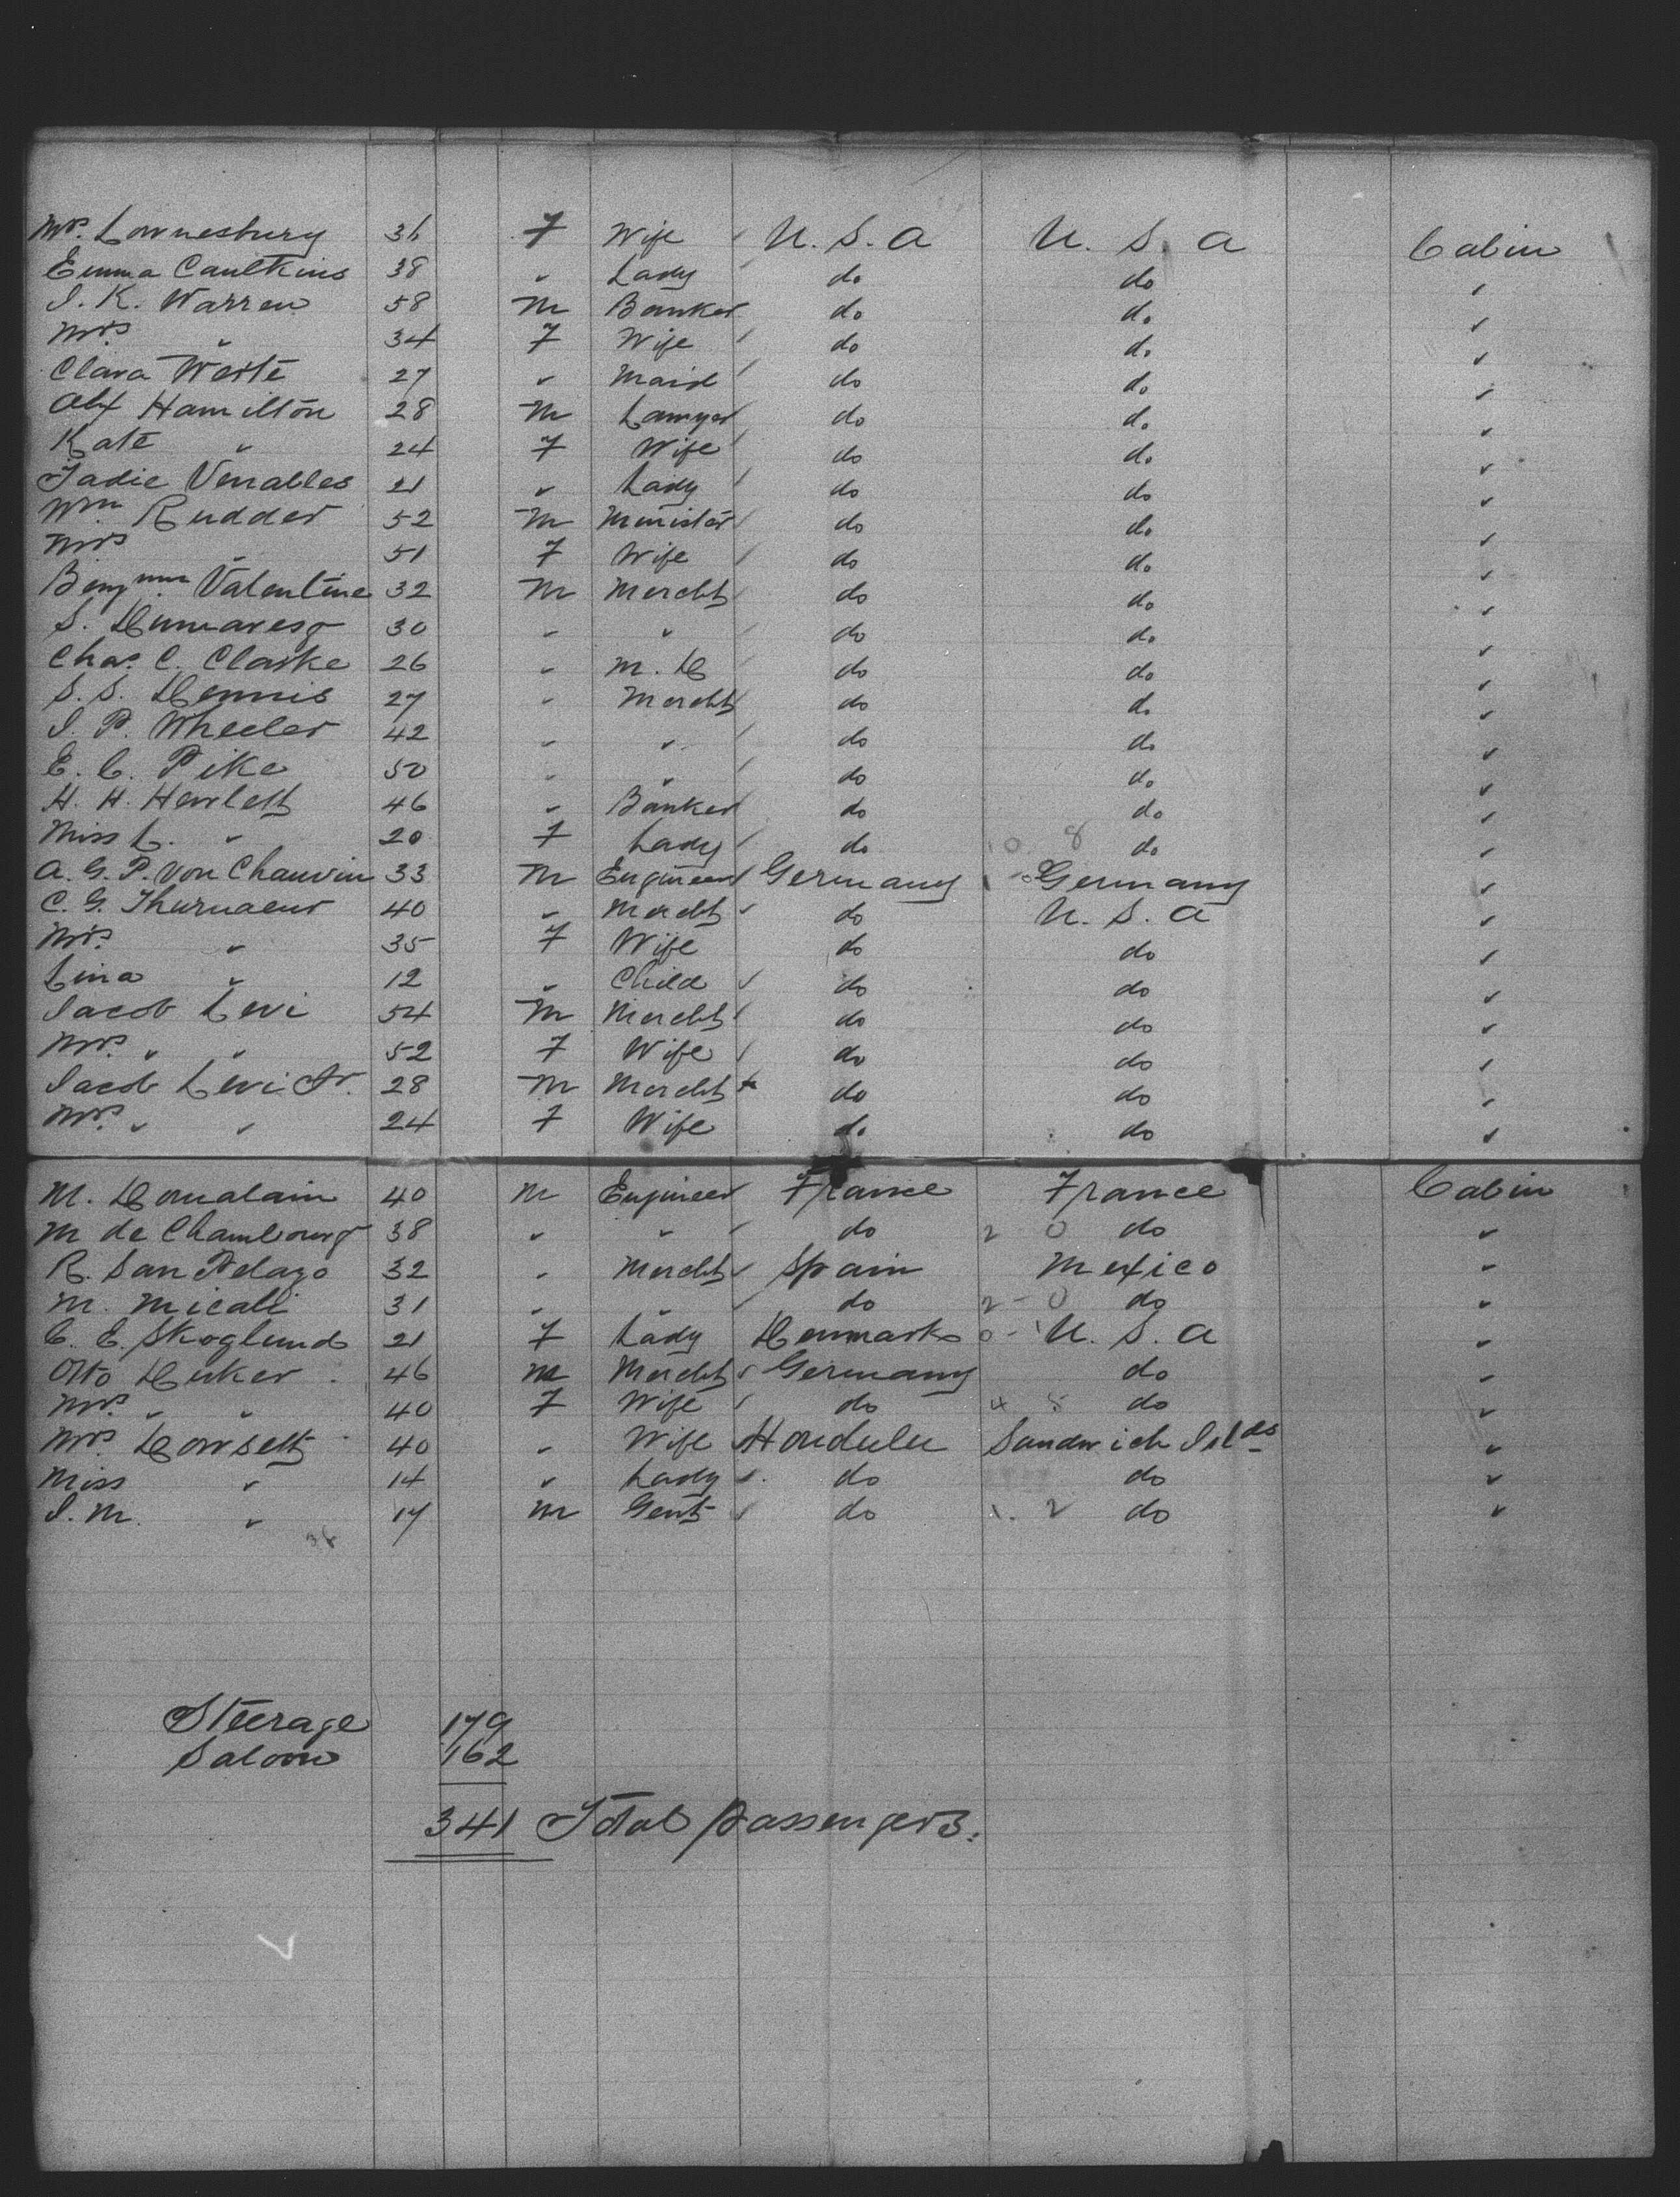 Mrs. Lownesbury 36 F Wife U. S. A U. S. A Cabin
Emma Caulkins 38 " Lady do do "
J. K. Warren 58 M Banker do do "
Mrs " 34 F Wife do do "
Clara Weste 27 " Maid do do "
Alex Hamilton 28 M Lawyer do do "
Kate " 24 F Wife do do "
Sadie Venables 21 " Lady do do "
Wm Rudder 52 M Minister do do "
Mrs 51 F Wife do do "
Benjmn. Valentine 32 M Mercht do do "
S. Dumaresq 30 " " do do "
Chas. C. Clarke 26 " M. D do do "
S. S. Dennis 27 " Mercht do do "
J. P. Wheeler 42 " " do do "
E. C. Pike 50 " " do do "
H. H. Hewlett 46 " Banker do do "
Miss L. " 20 F Lady do 10 8 do "
A. G. P. von Chauvin 33 M Engineer Germany 1 0 Germany "
C. G. Thurnaeur 40 " Mercht do U. S. A "
Mrs. " 35 F Wife do do "
Lina " 12 " Child do do "
Jacob Levi 54 M Mercht do do "
Mrs. " " 52 F Wife do do "
Jacob Levi Jr. 28 M Mercht do do "
Mrs. " " 24 F Wife do do "
M. Domalain 40 M Engineer France France Cabin
M de Chambourg 38 " " do 2 - 0 do "
R. San Pelayo 32 " Mercht Spain Mexico "
M. Micali 31 " " do 2 - 0 do "
C. E. Skoglund 21 F Lady Denmark 0 - 1 U. S. A "
Otto Duker 46 M Mercht Germany do "
Mrs. " " 40 F Wife do 4 8 do "
Mrs Dowsett 40 " Wife Honolulu Sandwich Islds "
Miss " 14 " Lady do do "
J. M. " 17 M Gent do 1. 2 do "
36
Steerage 179
Saloon 162
341 Total passengers.